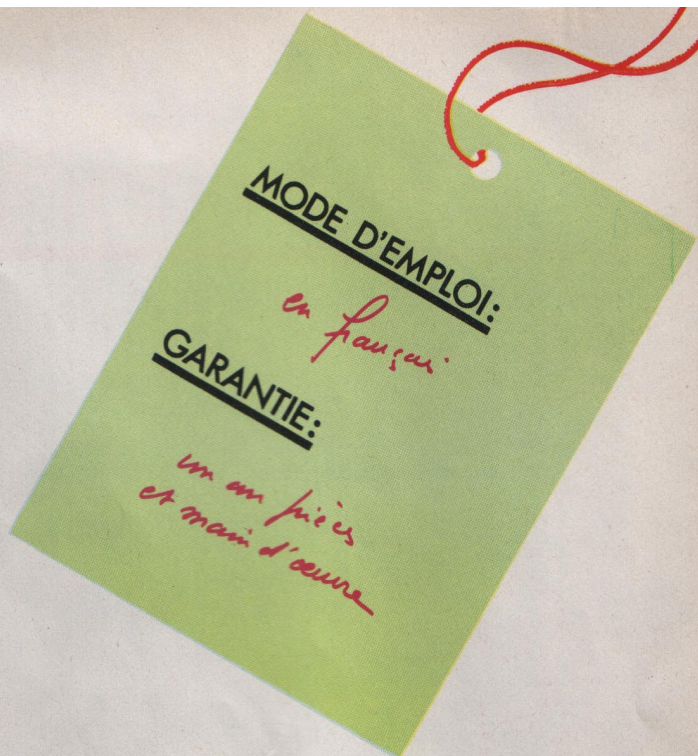 MODE D'EMPLOI:
en français
GARANTIE:
un an pièces
et main d'œuvre